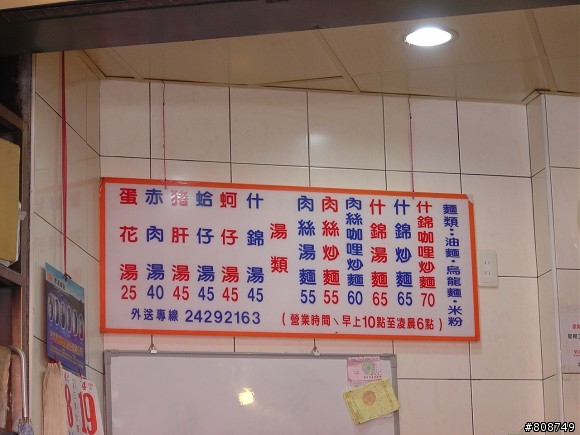 麵類：油麵・烏龍麵・米粉
什錦咖哩炒麵 70
什錦炒麵 65
什錦湯麵 65
肉絲咖哩炒麵 60
肉絲炒麵 55
肉絲湯麵 55
湯類
什錦湯 45
蚵仔湯 45
蛤仔湯 45
豬肝湯 45
赤肉湯 40
蛋花湯 25
外送專線 24292163
(營業時間、早上10點至凌晨6點)
4
8
19
#808749